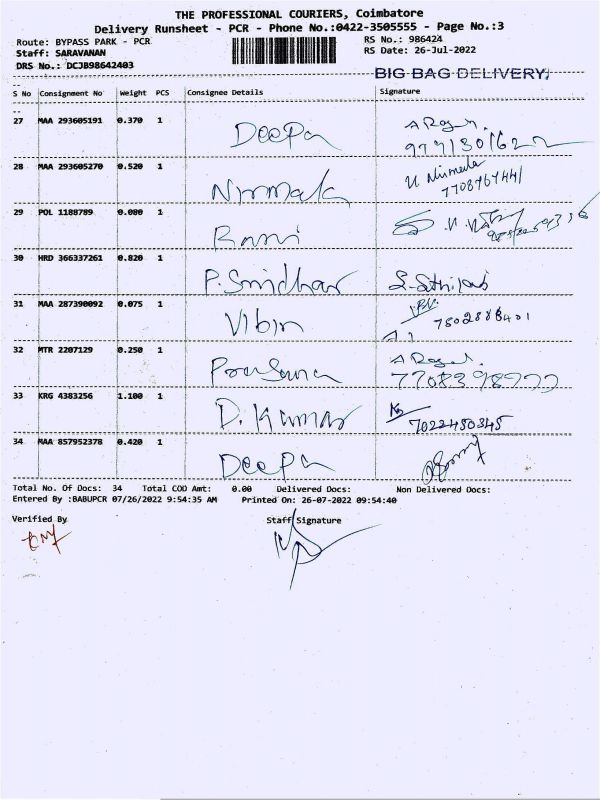 THE PROFESSIONAL COURIERS, Coimbatore
Delivery Runsheet - PCR - Phone No.:0422-3505555 - Page No.:3
Route: BYPASS PARK - PCR RS No.: 986424
Staff: SARAVANAN RS Date: 26-Jul-2022
DRS No.: DCJB98642403
BIG BAG DELIVERY,
S No Consignment No Weight PCS Consignee Details Signature
27 MAA 293605191 0.370 1 Deepa
28 MAA 293605270 0.520 1 Nirmala U Nirmala
7708767441
29 POL 1188789 0.080 1 Rani
30 HRD 366337261 0.820 1 P. Sridhar
31 MAA 287390092 0.075 1 Vibin
32 MTR 2207129 0.250 1 Prasanna
33 KRG 4383256 1.100 1 D. Kumar
7022450345
34 MAA 857952378 0.420 1 Deepa
Total No. Of Docs: 34 Total COD Amt: 0.00 Delivered Docs: Non Delivered Docs:
Entered By :BABUPCR 07/26/2022 9:54:35 AM Printed On: 26-07-2022 09:54:40
Verified By Staff Signature